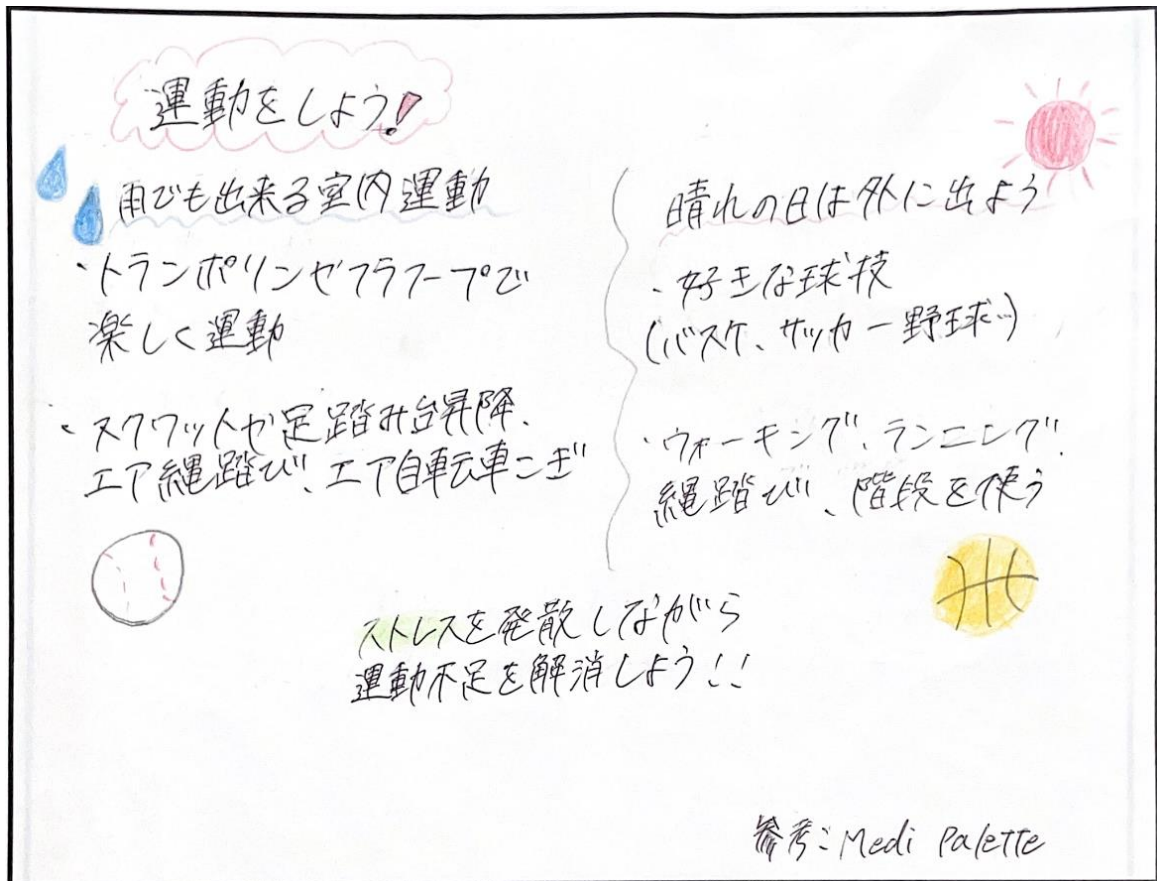 運動をしよう!
雨でも出来る室内運動
・トランポリンやフラフープで
楽しく運動
・スクワットや足踏み台昇降、
エア縄踏び、エア自転車こぎ
晴れの日は外に出よう
・好きな球技
(バスケ、サッカー野球…)
・ウォーキング、ランニング、
縄踏び、階段を使う
ストレスを発散しながら
運動不足を解消しよう!!
参考:Medi Palette